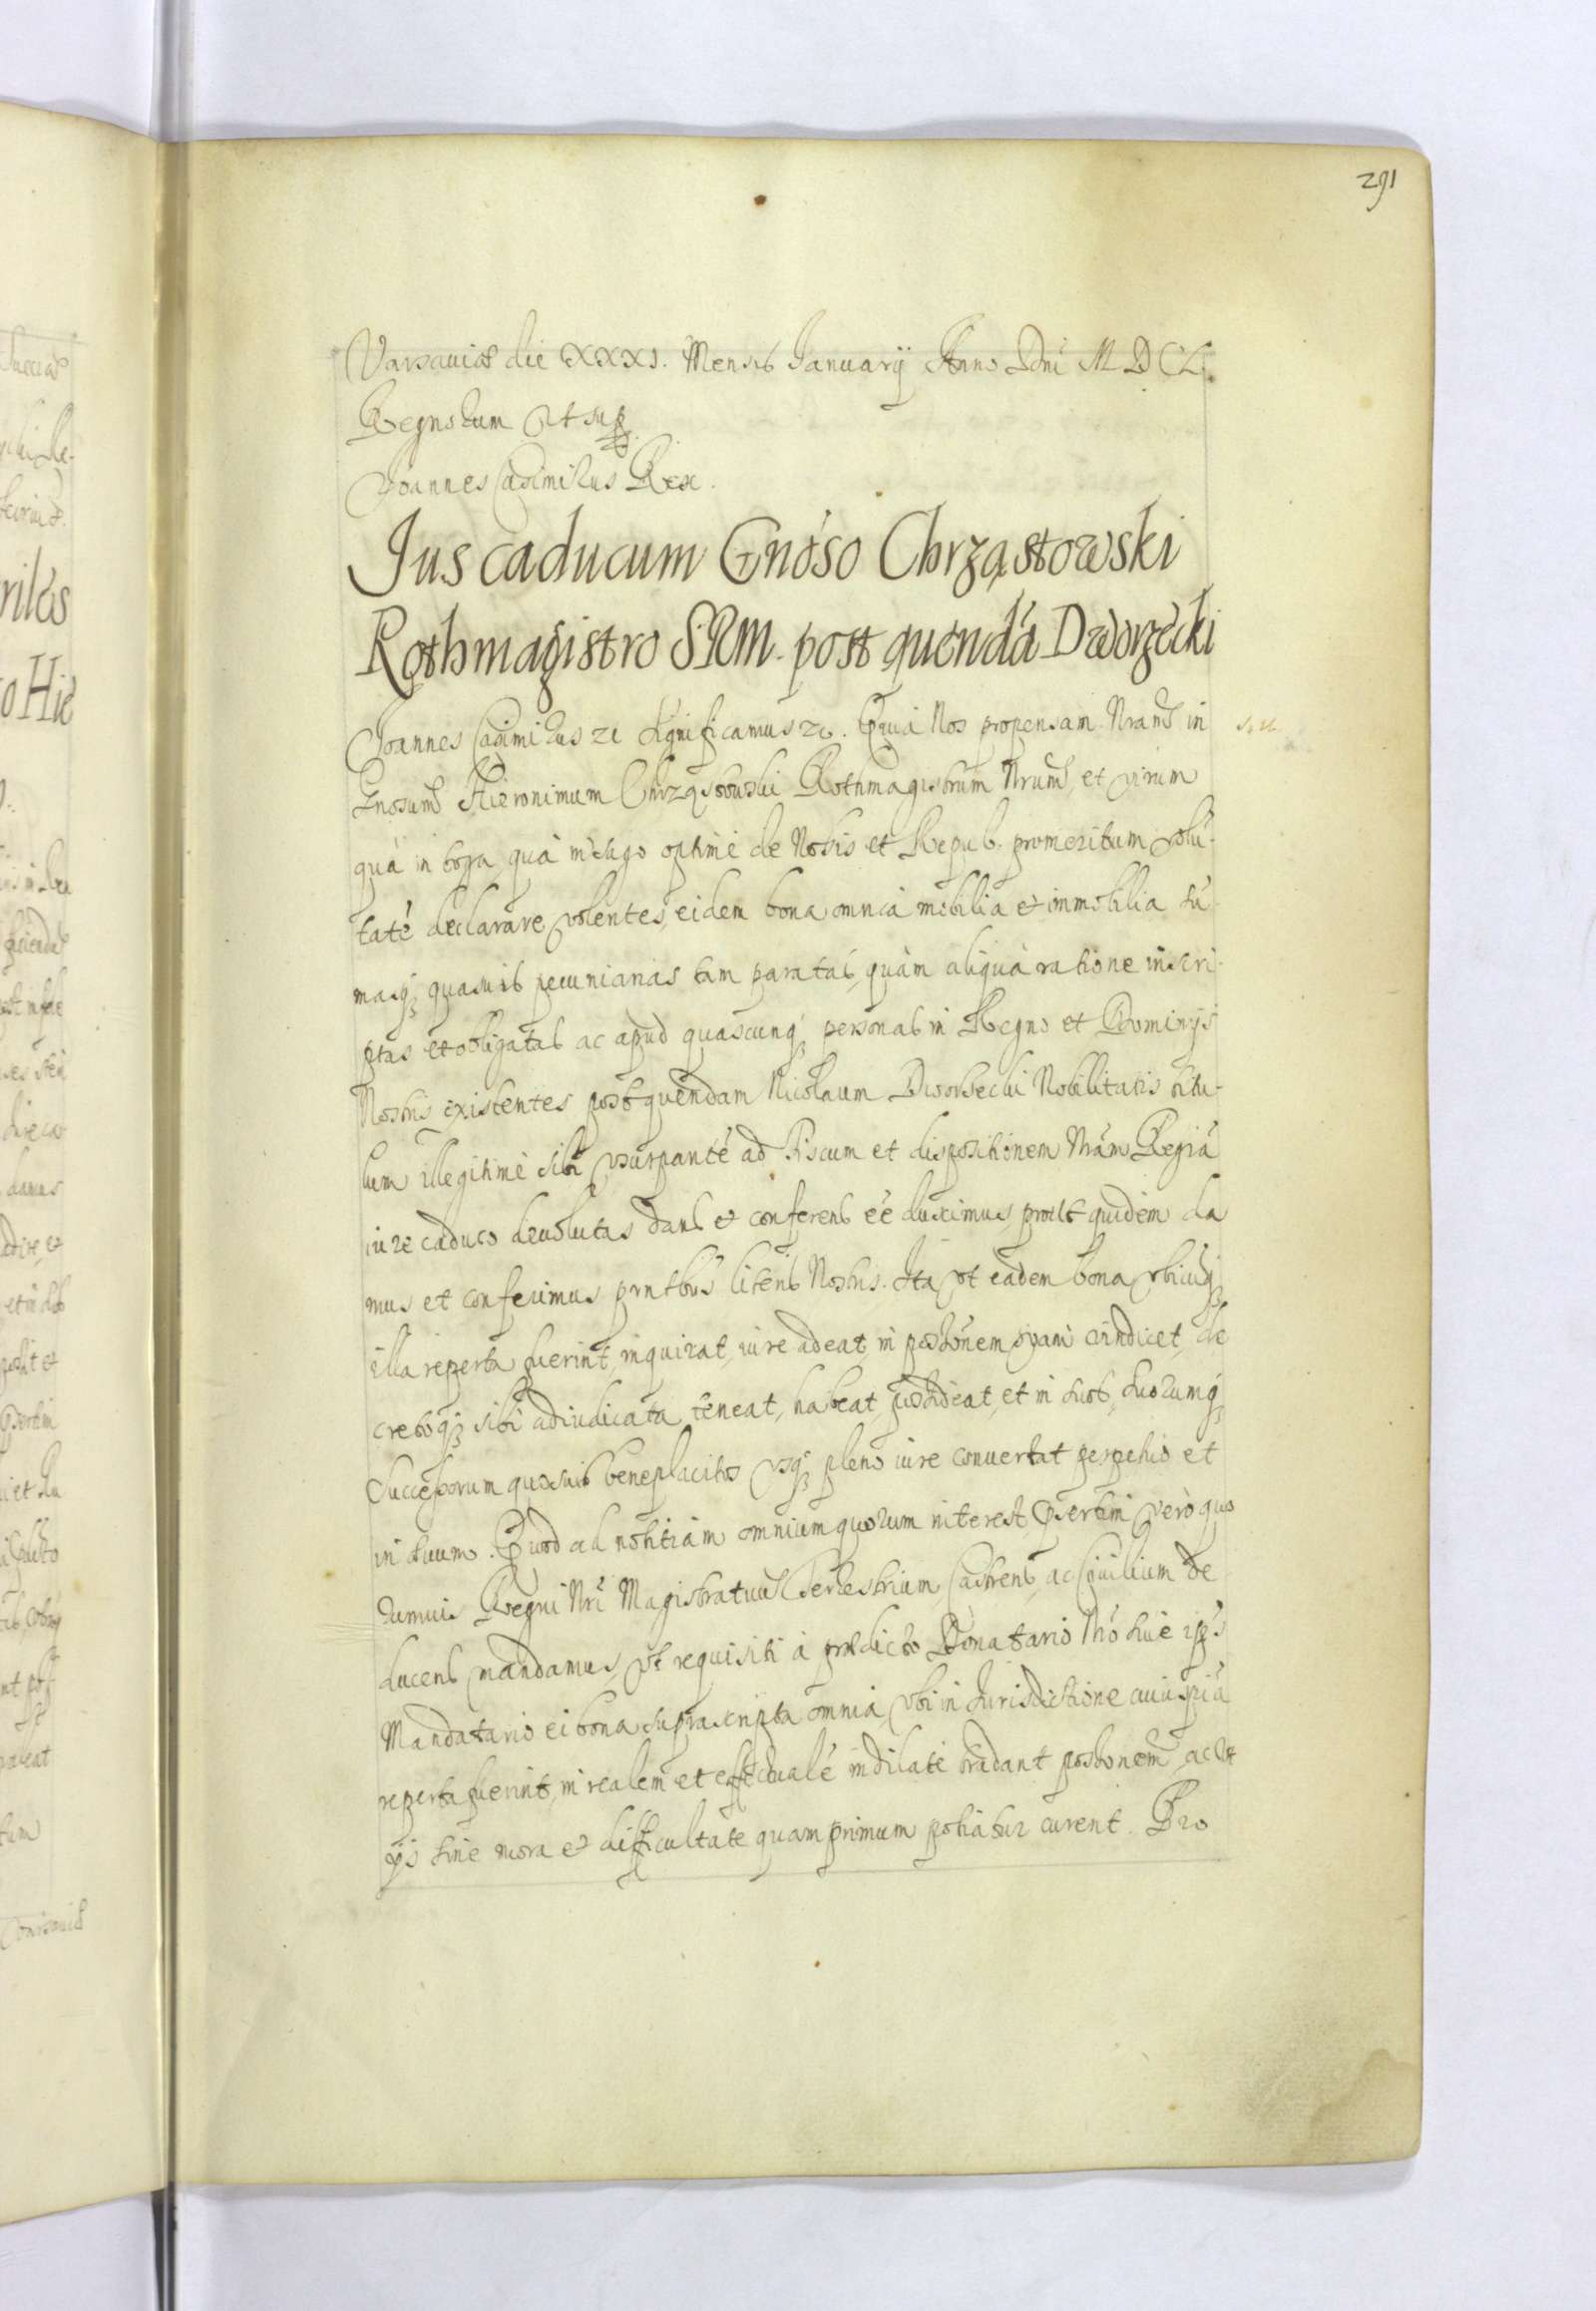 291
Varsauiæ die XXXI. Mensis Januarij Anno Dni M D C L.
Regnorum ut sup.
Joannes Casimirus Rex.
Jus caducum Gnóso Chrząstowski
Rothmagistro SRM. post quendá Dworzecki
Joannes Casimirus &c Significamus &c. Quia Nos propensam Nram in
Gnosum Hieronimum Chrząstowski Rothmagistrum Nrum, et virum
quà in toga, quà in sago optimè de Nobis et Repub. promeritum volú-
taté declarare volentes, eidem bona omnia mobilia et immobilia sú-
masq quasuis pecuniarias tam paratas, quàm aliquà ratione inscri-
ptas et obligatas ac apud quascunq personas in Regno et Dominijs
Nostris existentes post quendam Nicolaum Dworzecki Nobilitatis titu-
lum illegitimè sibi vsurpanté ad Fiscum et dispositionem Nrám Regiá
iure caduco deuolutas dand et conferend eé duximus, prout quidem da
mus et conferimus prntbus literis Nostris. Ita vt eadem bona vbicuq
illa reperta fuerint, inquirat, iure adeat, in possionem suam vindicet, de
cretoq sibi adiudicata teneat, habeat, possideat, et in suos, suorumq
Successorum quosuis beneplacitos vsq pleno iure conuertat perpetuò et
in æuum. Quod ad notitiam omnium quorum interest, præsertim verò quo
rumuis Regni Nri Magistratuum Terrestrium Castrens, ac Ciuilium de
ducend mandamus, vt requisiti à prædicto Donatario Nró siue ipś
Mandatario ei bona suprascripta omnia, vbi in Jurisdictione cuiuspiá
reperta fuerint, in realem et effectualé indilatè tradant possionem, ac vt
ijs sine mora et difficultate quam primum potiatur curent. Pro